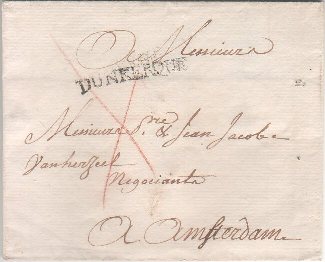 A Messieurs
DUNKERQUE
Messieurs & Jean Jacob
Vanherzeel
Negociants
A Amsterdam